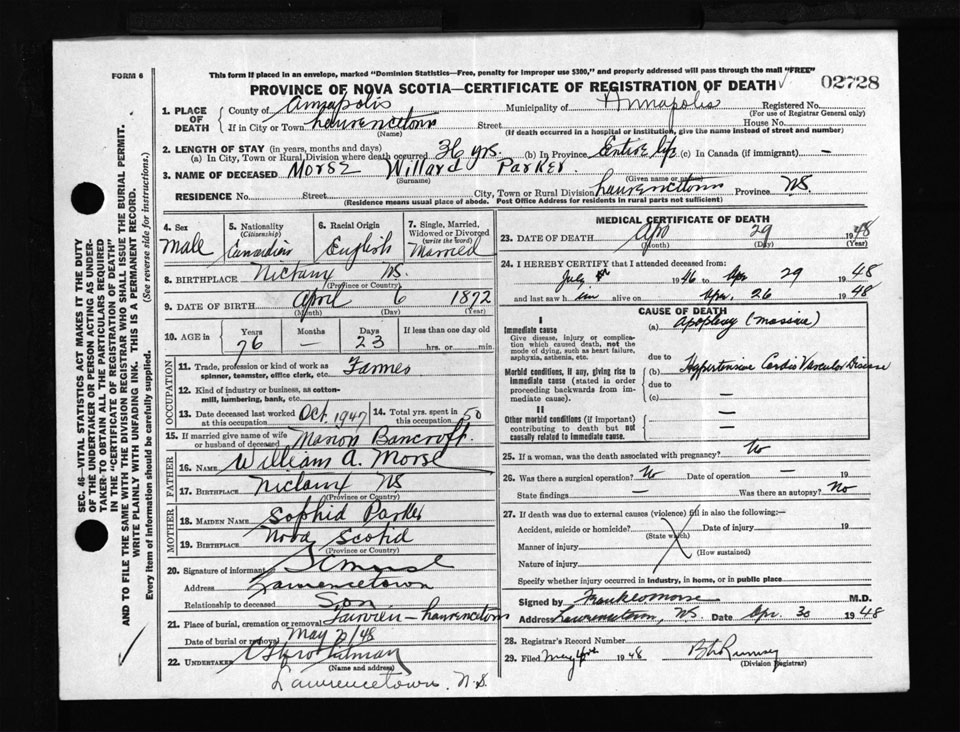 FORM 6
This form if placed in an envelope, marked "Dominion Statistics—Free, penalty for improper use $300," and properly addressed will pass through the mail "FREE"
PROVINCE OF NOVA SCOTIA—CERTIFICATE OF REGISTRATION OF DEATH
02728
SEC. 46—VITAL STATISTICS ACT MAKES IT THE DUTY
OF THE UNDERTAKER OR PERSON ACTING AS UNDER-
TAKER TO OBTAIN ALL THE PARTICULARS REQUIRED
IN THE "CERTIFICATE OF REGISTRATION OF DEATH"
AND TO FILE THE SAME WITH THE DIVISION REGISTRAR WHO SHALL ISSUE THE BURIAL PERMIT.
WRITE PLAINLY WITH UNFADING INK. THIS IS A PERMANENT RECORD.
Every item of information should be carefully supplied. (See reverse side for instructions.)
1. PLACE OF DEATH
County of Annapolis Municipality of Annapolis Registered No.
(For use of Registrar General only)
If in City or Town Lawrencetown Street House No.
(Name) (If death occurred in a hospital or institution, give the name instead of street and number)
2. LENGTH OF STAY (in years, months and days)
(a) In City, Town or Rural Division where death occurred 36 yrs. (b) In Province Entire life (c) In Canada (if immigrant) —
3. NAME OF DECEASED Morse Willard Parker
(Surname) (Given name or names)
RESIDENCE No. Street City, Town or Rural Division Lawrencetown Province NS
(Residence means usual place of abode. Post Office Address for residents in rural parts not sufficient)
4. Sex Male
5. Nationality (Citizenship) Canadian
6. Racial Origin English
7. Single, Married, Widowed or Divorced (write the word) Married
8. BIRTHPLACE Nictaux NS.
(Province or Country)
9. DATE OF BIRTH April 6 1872
(Month) (Day) (Year)
10. AGE in Years 76 Months — Days 23 If less than one day old hrs. or min.
OCCUPATION
11. Trade, profession or kind of work as spinner, teamster, office clerk, etc. Farmer
12. Kind of industry or business, as cotton-mill, lumbering, bank, etc.
13. Date deceased last worked at this occupation Oct. 1947
14. Total yrs. spent in this occupation 50
15. If married give name of wife or husband of deceased Manon Bancroft
FATHER
16. NAME William A. Morse
17. BIRTHPLACE Nictaux NS
(Province or Country)
MOTHER
18. MAIDEN NAME Sophia Parker
19. BIRTHPLACE Nova Scotia
(Province or Country)
20. Signature of informant
Address Lawrencetown
Relationship to deceased Son
21. Place of burial, cremation or removal Fairview - Lawrencetown
Date of burial or removal May 2/48
22. UNDERTAKER
(Name and address)
Lawrencetown, N.S.
MEDICAL CERTIFICATE OF DEATH
23. DATE OF DEATH Apr 29 1948
(Month) (Day) (Year)
24. I HEREBY CERTIFY that I attended deceased from:
July 1946 to Apr 29 1948
and last saw him alive on Apr. 26 1948
CAUSE OF DEATH
I
Immediate cause
Give disease, injury or complication which caused death, not the mode of dying, such as heart failure, asphyxia, asthenia, etc.
(a) Apoplexy (massive)
due to
Morbid conditions, if any, giving rise to immediate cause (stated in order proceeding backwards from immediate cause).
(b) Hypertensive Cardio Vascular Disease
due to —
(c) —
II
Other morbid conditions (if important) contributing to death but not causally related to immediate cause.
—
—
25. If a woman, was the death associated with pregnancy? No
26. Was there a surgical operation? No Date of operation — 19
State findings — Was there an autopsy? No
27. If death was due to external causes (violence) fill in also the following:—
Accident, suicide or homicide? Date of injury 19
(State which)
Manner of injury
(How sustained)
Nature of injury
Specify whether injury occurred in industry, in home, or in public place
Signed by Frank Morse M.D.
Address Lawrencetown, NS. Date Apr. 30 1948
28. Registrar's Record Number
29. Filed May 1948
(Division Registrar)